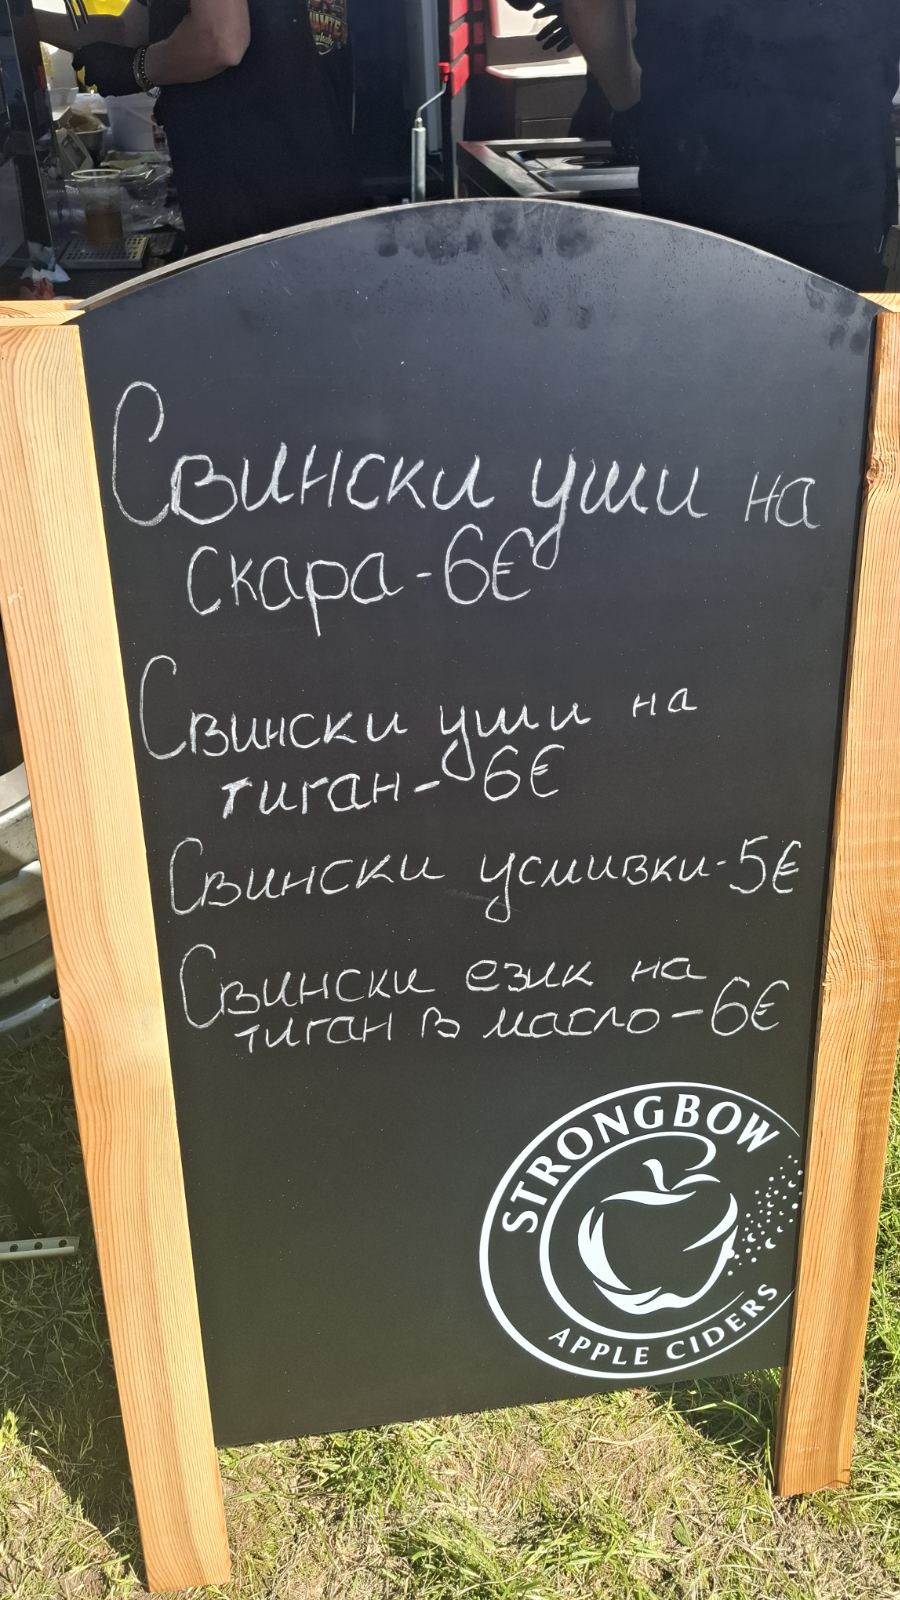 Свински уши на
скара-6€
Свински уши на
тиган- 6€
Свински усмивки-5€
Свински език на
тиган в масло-6€
STRONGBOW
APPLE CIDERS